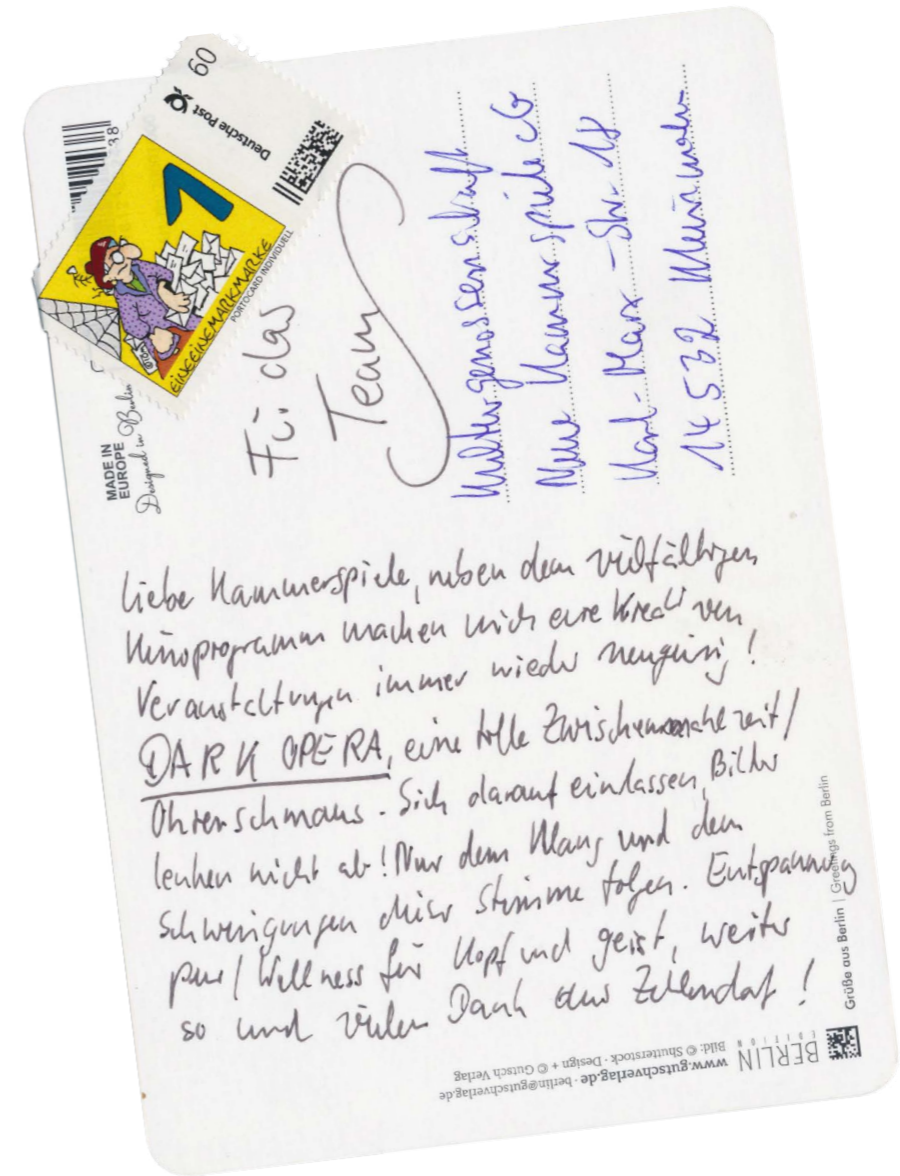 60
Deutsche Post
1
EINEEINEMARKMARKE
PORTOCARD INDIVIDUELL
38
MADE IN
EUROPE
Designed in Berlin
Für das
Team
Kulturgenossenschaft
Neue Kammerspiele eG
Karl-Marx-Str. 18
14532 Kleinmachn
Liebe Kammerspiele, neben dem vielfältigen
Kinoprogramm machen mich eure kreativen
Veranstaltungen immer wieder neugierig!
DARK OPERA, eine tolle Zwischenmahlzeit/
Ohrenschmaus. Sich darauf einlassen, Bilder
lenken nicht ab! Nur dem Klang und den
Schwingungen dieser Stimme folgen. Entspannung
pur/Wellness für Kopf und geist, weiter
so und vielen Dank aus Zehlendorf!
Grüße aus Berlin | Greetings from Berlin
BERLIN
EDITION
www.gutschverlag.de · berlin@gutschverlag.de
Bild: © Shutterstock · Design + © Gutsch Verlag